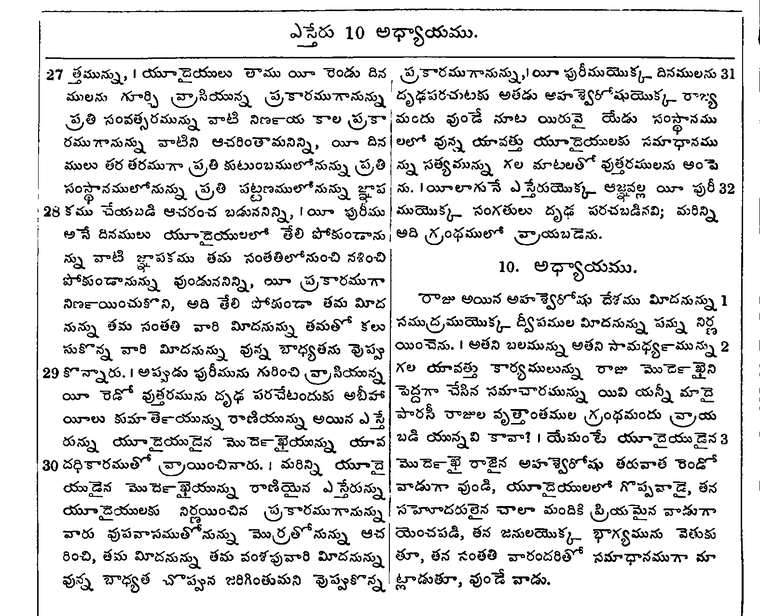 ఎస్తేరు 10 అధ్యాయము.
27 త్తమున్ను, । యూదైయులు తాము యీ రెండు దిన
ములను గూర్చి వ్రాసియున్న ప్రకారముగానున్ను
ప్రతి సంవత్సరమున్ను వాటి నిణ౯య కాల ప్రకా
రముగానున్ను వాటిని ఆచరింతామనిన్ని, యీ దిన
ములు తర తరముగా ప్రతి కుటుంబములోనున్ను ప్రతి
సంస్థానములోనున్ను ప్రతి పట్టణములోనున్ను జ్ఞాప
28 కము చేయబడి ఆచరించ బడుననిన్ని, । యీ పురీము
అనే దినములు యూదైయులలో తేలి పోకుండాను
న్ను వాటి జ్ఞాపకము తమ సంతతిలోనుంచి నశించి
పోకుండానున్ను వుండుననిన్ని, యీ ప్రకారముగా
నిణ౯యించుకొని, అది తేలి పోకుండా తమ మీద
నున్ను తమ సంతతి వారి మీదనున్ను తమతో కలు
సుకొన్న వారి మీదనున్ను వున్న బాధ్యతను వొప్పు
29 కొన్నారు. । అప్పుడు పురీమును గురించి వ్రాసియున్న
యీ రెండో వుత్తరమును దృఢ పరచేటందుకు అబీహా
యీలు కుమాతె౯యున్ను రాణియున్ను అయిన ఎస్తే
రున్ను యూదైయుడైన మొద౯ఖైయున్ను యావ
30 దధికారముతో వ్రాయించినారు. । మరిన్ని యూదై
యుడైన మొద౯ఖైయున్ను రాణియైన ఎస్తేరున్ను
యూదైయులకు నిర్ణయించిన ప్రకారముగానున్ను
వారు వుపవాసముతోనున్ను మొర్రతోనున్ను ఆచ
రించి, తమ మీదనున్ను తమ వంశపువారి మీదనున్ను
వున్న బాధ్యత చొప్పున జరిగింతుమని వొప్పుకొన్న
ప్రకారముగానున్ను, । యీ పురీముయొక్క దినములను 31
దృఢపరచుటకు అతడు అహశ్వేరోషుయొక్క రాజ్య
మందు వుండే నూట యిరువై యేడు సంస్థానము
లలో వున్న యావత్తు యూదైయులకు సమాధానము
న్ను సత్యమున్ను గల మాటలతో వుత్తరములను అంపె
ను. । యీలాగునే ఎస్తేరుయొక్క ఆజ్ఞవల్ల యీ పురీ 32
ముయొక్క సంగతులు దృఢ పరచబడినవి; మరిన్ని
అది గ్రంథములో వ్రాయబడెను.
10. అధ్యాయము.
రాజు అయిన అహశ్వేరోషు దేశము మీదనున్ను 1
సముద్రముయొక్క ద్వీపముల మీదనున్ను పన్ను నిర్ణ
యించెను. । అతని బలమున్ను అతని సామర్ధ్యమున్ను 2
గల యావత్తు కార్యములున్ను రాజు మొద౯ఖైని
పెద్దగా చేసిన సమాచారమున్ను యివి యన్నీ మాదై
పారసీ రాజుల వృత్తాంతముల గ్రంథమందు వ్రాయ
బడి యున్నవి కావా? । యేమంటే యూదైయుడైన 3
మొద౯ఖై రాజైన అహశ్వేరోషు తరువాత రెండో
వాడుగా వుండి, యూదైయులలో గొప్పవాడై, తన
సహోదరులైన చాలా మందికి ప్రియమైన వాడుగా
యెంచపడి, తన జనులయొక్క భాగ్యమును వెతుకు
తూ, తన సంతతి వారందరితో సమాధానముగా మా
ట్లాడుతూ, వుండే వాడు.